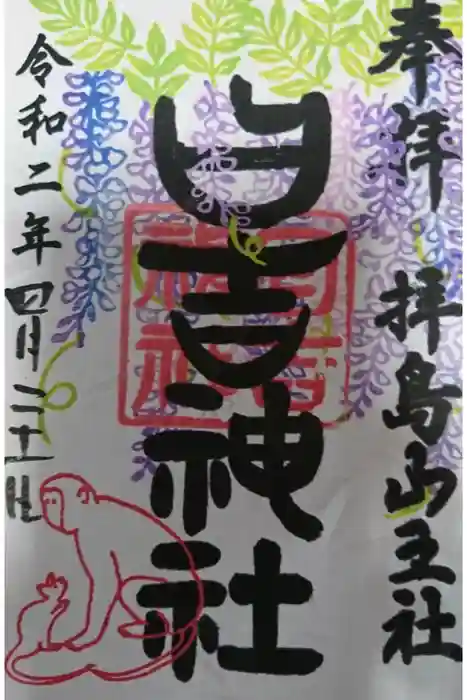 奉拝 拝島山王社
日吉神社
日吉神社
令和二年四月二十一日